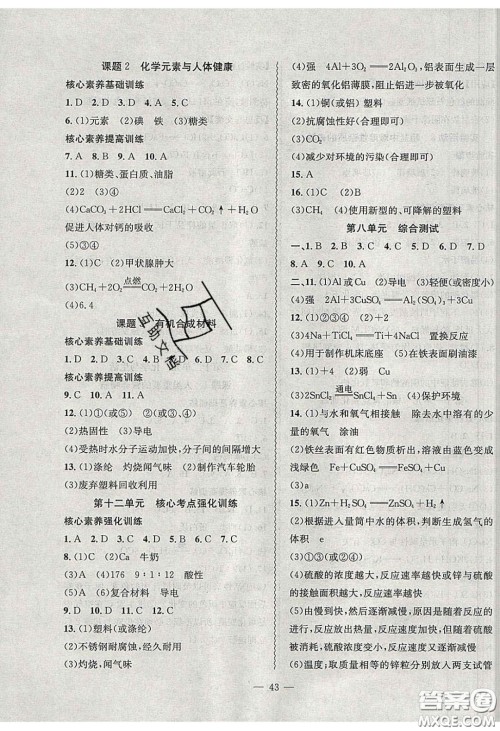 课题2 化学元素与人体健康
核心素养基础训练
1. D 2. A 3. A 4. D 5. C
6. (1)元素 (2)碘 铁 (3)糖类
核心素养提高训练
7. A 8. A 9. C 10. A
11. (1)糖类、蛋白质、油脂
(2)2 (3)④
(4)CaCO₃+2HCl══CaCl₂+CO₂↑+H₂O
促进人体对钙的吸收
(5)③④
12. (1)C (2)甲状腺肿大
(3)CH₄+2O₂ 点燃 CO₂+2H₂O
(4)6.4
课题 有机合成材料
核心素养基础训练
1. D 2. D 3. C 4. A 5. D 6. D 7. D 8. A
核心素养提高训练
9. C 10. D 11. A
12. (1)①(或⑤) ②(或③④)
(2)热固性 (3)导电
(4)受热时水分子运动加快,分子间的间隔增大
13. (1)涤纶 灼烧闻气味 (2)制作汽车轮胎
(3)废弃塑料回收利用
第十二单元 核心考点强化训练
核心素养强化训练
1. A 2. B 3. D 4. C 5. B 6. D 7. D
8. (1)C (2)Ca 牛奶
(3)A (4)176 9∶1∶12 酸性
(5)A (6)复合材料 导电
9. D 10. D 11. C 12. A
13. (1)塑料(或涤纶)
(2)不锈钢耐腐蚀,经久耐用
(3)灼烧,闻气味
(4)强 4Al+3O₂══2Al₂O₃,铝表面生成一层
致密的氧化铝薄膜,阻止铝进一步被氧化
14. (1)铜(或铝) 塑料
(2)抗腐蚀性好(合理即可)
(3)CO₂
(4)减少对环境的污染(合理即可)
15. A
16. (1)C (2)B
(3)CH₄ (4)使用新型的、可降解的塑料
第八单元 综合测试
二、11. (1)A (2)导电 (3)轻便(或密度小)
12. (1)②③④
(3)4Na+TiCl₄══Ti+4NaCl 置换反应
(4)用于制作机床底座 (5)在铁表面刷油漆
13. (1)2 (2)弱 Cu
(3)2SnCl₂ 通电 SnCl₄+Sn (4)保护环境
14. (1)与水和氧气相接触 除去水中溶有的少量
的氧气 涂油
(2)铁丝表面有红色物质生成,溶液由蓝色变成
浅绿色 Fe+CuSO₄══FeSO₄+Cu
15. (1)Zn+H₂SO₄══ZnSO₄+H₂↑
(2)根据进入量筒中水的体积,判断生成氢气的
体积 e
(3)①③(或②④)
(4)硫酸的浓度越大,反应速率越快或锌与硫酸
的接触面积越大,反应速率越快
(5)由慢到快,然后又逐渐减慢,反应开始时,硫
酸浓度大,反应放出热量,反应速率加快,随着反
应进行,硫酸浓度逐渐减小,反应逐渐减慢
(6)温度;取质量相等的锌粒分别放入两支试管
— 43 —
互助文档
答案圈
MXQE.COM